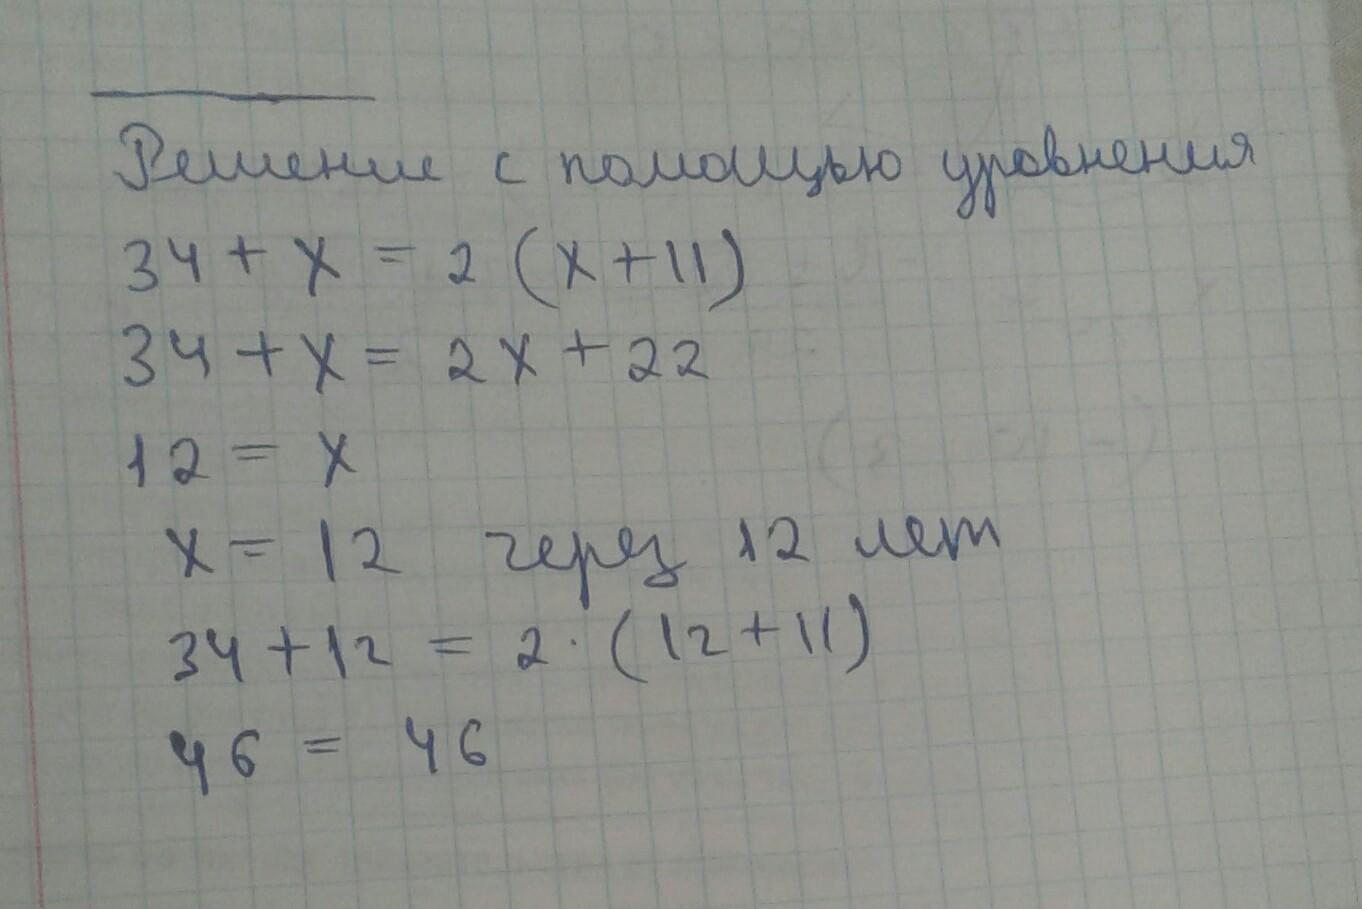 Решение с помощью уровнения
34 + x = 2 (x + 11)
34 + x = 2x + 22
12 = x
x = 12 через 12 лет
34 + 12 = 2 · (12 + 11)
46 = 46